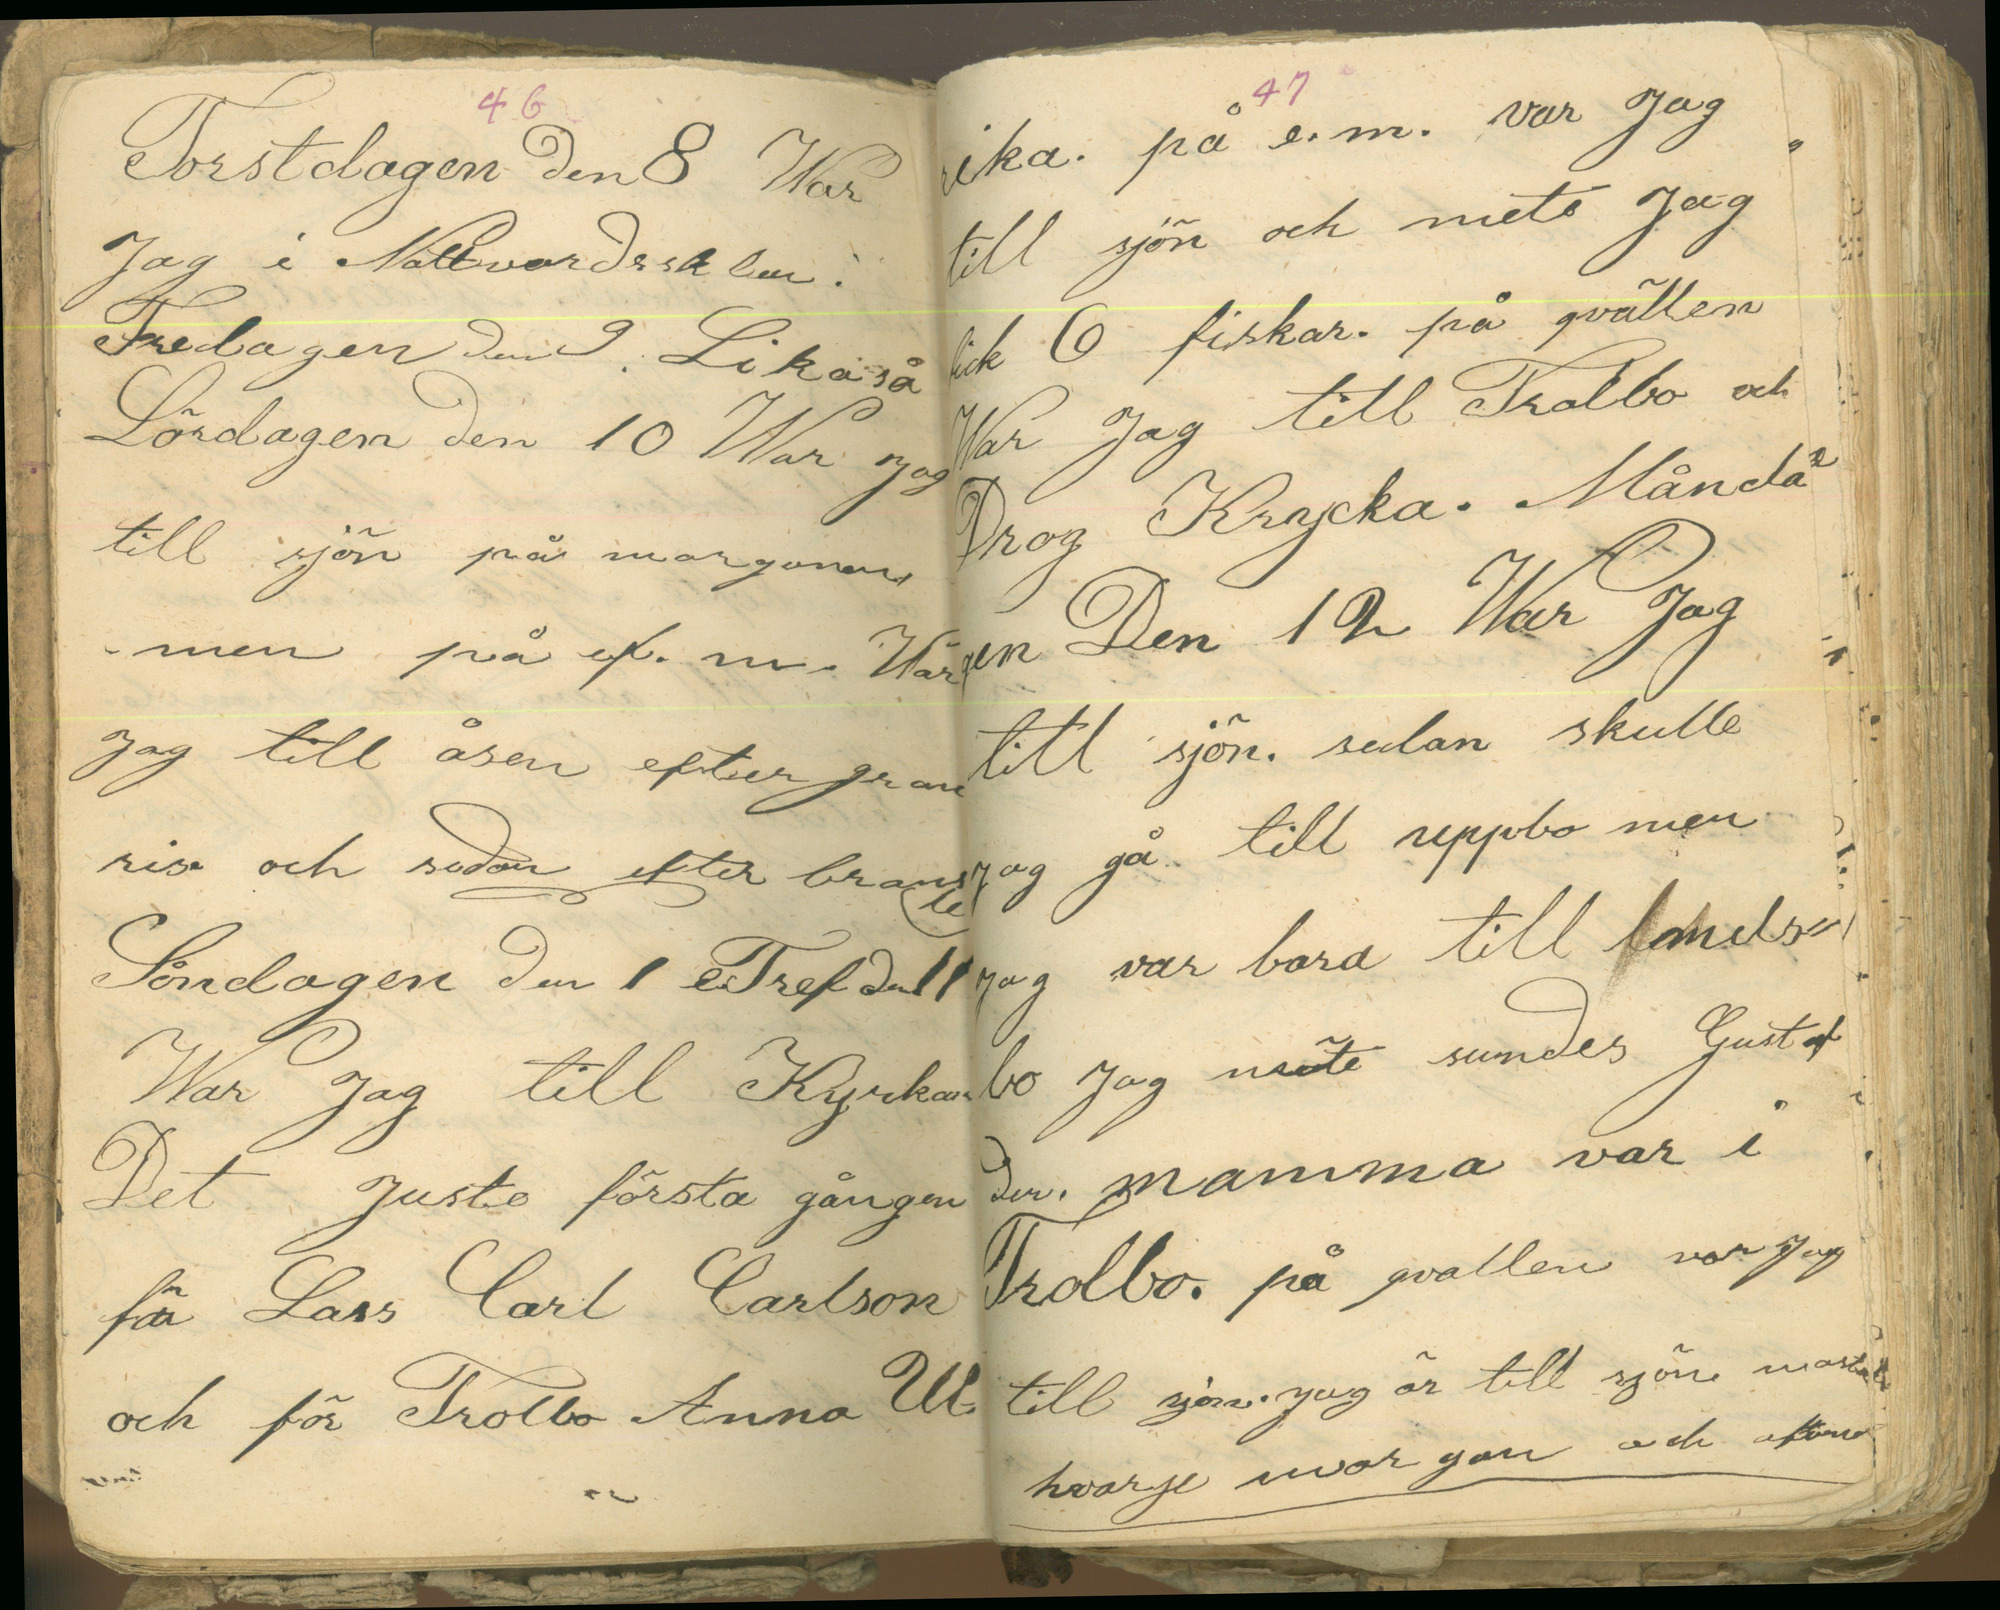 46
Torstdagen den 8 War
Jag i Nattvardsskolan.
Fredagen den 9. Likaså
Lördagen den 10 War jag
till sjön på morgonen
men på ef. m. War
jag till åsen efter gran
ris och sedan efter brans
te
Söndagen den 1 e Tref den 11
War Jag till Kyrkan
Det Juste första gången
för Lars Carl Carlson
och för Trollbo Anna Ul-
47
rika. på e.m. var Jag
till sjön och mete Jag
fick 6 fiskar. på qvällen
War Jag till Trollbo och
Drog Krycka. Månda
gen Den 12 War Jag
till sjön. sedan skulle
jag gå till uppbo men
jag var bara till
bo jag möte sundes Gustaf
der. mamma var i
Trolbo. på qvallen var Jag
till sjön. jag är till sjön
hvarje morgon och